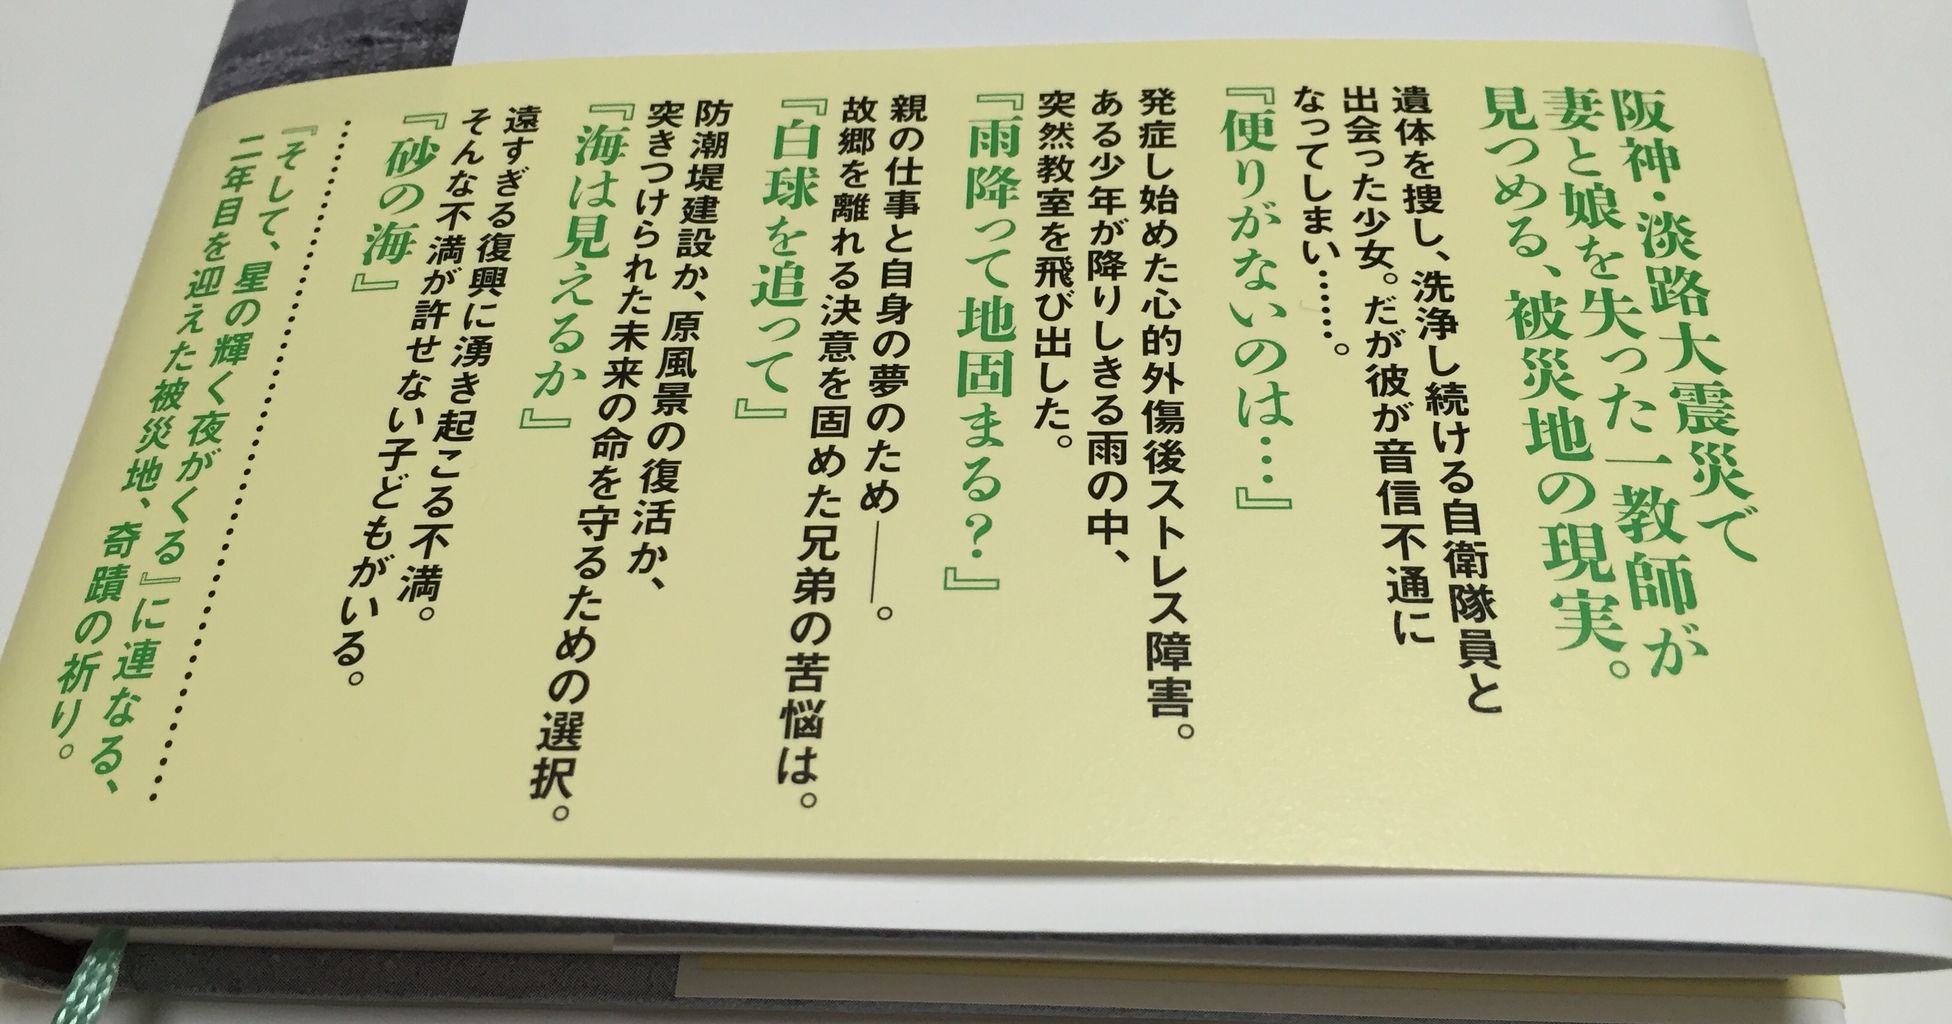 阪神・淡路大震災で
妻と娘を失った一教師が
見つめる、被災地の現実。
遺体を捜し、洗浄し続ける自衛隊員と
出会った少女。だが彼が音信不通に
なってしまい……。
『便りがないのは…』
発症し始めた心的外傷後ストレス障害。
ある少年が降りしきる雨の中、
突然教室を飛び出した。
『雨降って地固まる？』
親の仕事と自身の夢のため――。
故郷を離れる決意を固めた兄弟の苦悩は。
『白球を追って』
防潮堤建設か、原風景の復活か、
突きつけられた未来の命を守るための選択。
『海は見えるか』
遠すぎる復興に湧き起こる不満。
そんな不満が許せない子どもがいる。
『砂の海』
『そして、星の輝く夜がくる』に連なる、
二年目を迎えた被災地、奇蹟の祈り。